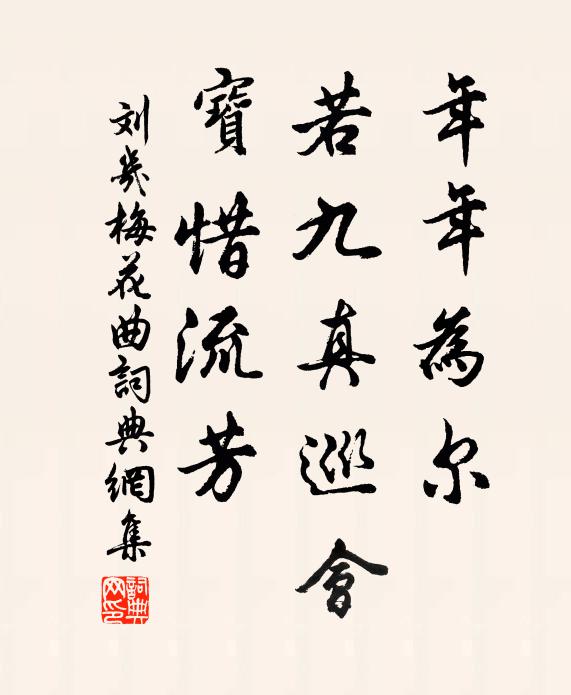 年年為尔
若九真巡會
寶惜流芳
刘㡬梅花曲詞典網集
詞典網印